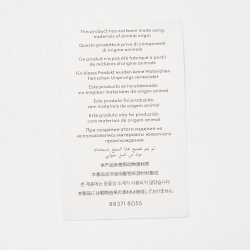 This product has not been made using
materials of animal origin
Questo prodotto è privo di componenti
di origine animale
Ce produit n'a pas été fabriqué à partir
de matières d'origine animale
Für dieses Produkt wurden keine Materialien
tierischen Ursprungs verwendet
Este producto se ha elaborado
sin emplear materiales de origen animal
Este produto foi produzido
sem materiais de origem animal
Este produto não foi produzido
com materiais de origem animal
При создании этого изделия не
использовались материалы животного
происхождения
لم يتم صنع هذا المنتج باستخدام
مواد من أصل حيواني
本产品未使用动物源材质
本產品並非使用動物來源材料製造
본 제품에는 동물성 소재가 사용되지 않았습니다
本製品には動物由来の素材は使用しておりません
88371 8055